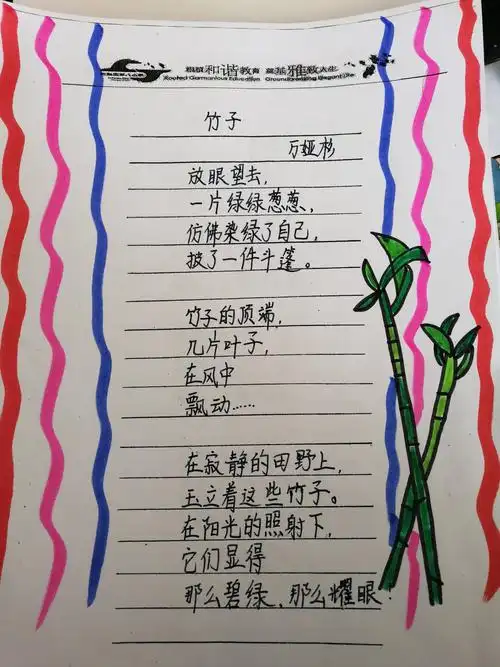 根植和谐教育 奠基雅致人生
Rooted Garmonious Education Groundbreaking Elegant Life
竹子
万娅杉
放眼望去，
一片绿绿葱葱，
仿佛染绿了自己，
披了一件斗篷。
竹子的顶端，
几片叶子，
在风中
飘动……
在寂静的田野上，
玉立着这些竹子。
在阳光的照射下，
它们显得
那么碧绿、那么耀眼！